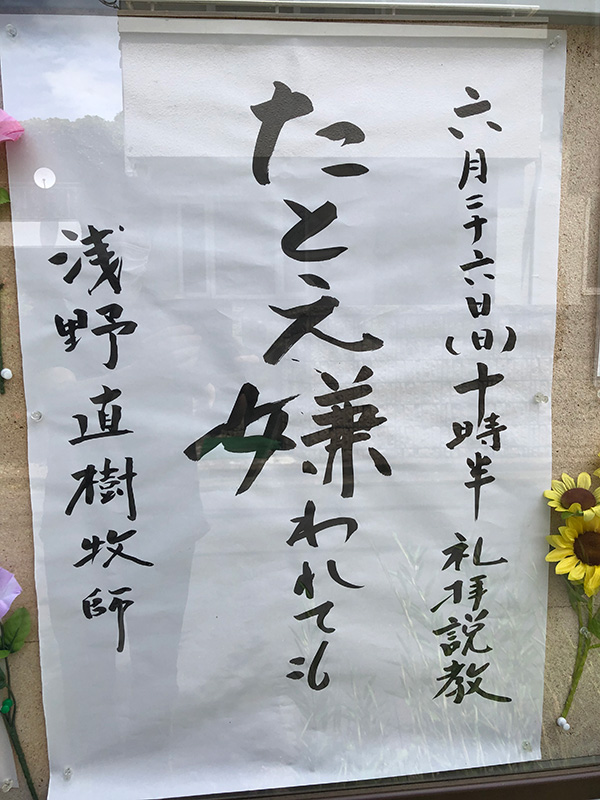 六月二十六日(日)十時半 礼拝説教
たとえ嫌われても
浅野直樹牧師